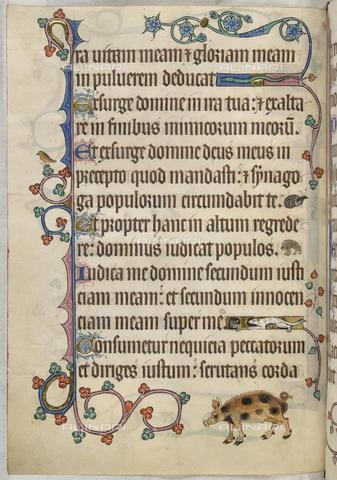 ra uitam meam ⁊ gloriam meam
in puluerem deducat
Exsurge domine in ira tua: ⁊ exalta
re in finibus inimicorum meorū.
Et exsurge domine deus meus in
precepto quod mandasti: ⁊ synago
ga populorum circumdabit te.
Et propter hanc in altum regrede
re: dominus iudicat populos.
Iudica me domine secundum iusti
ciam meam: et secundum innocen
ciam meam super me
Consumetur nequicia peccatorum
et diriges iustum: scrutans corda
ALINARI
ALINARI
ALINARI
ALINARI